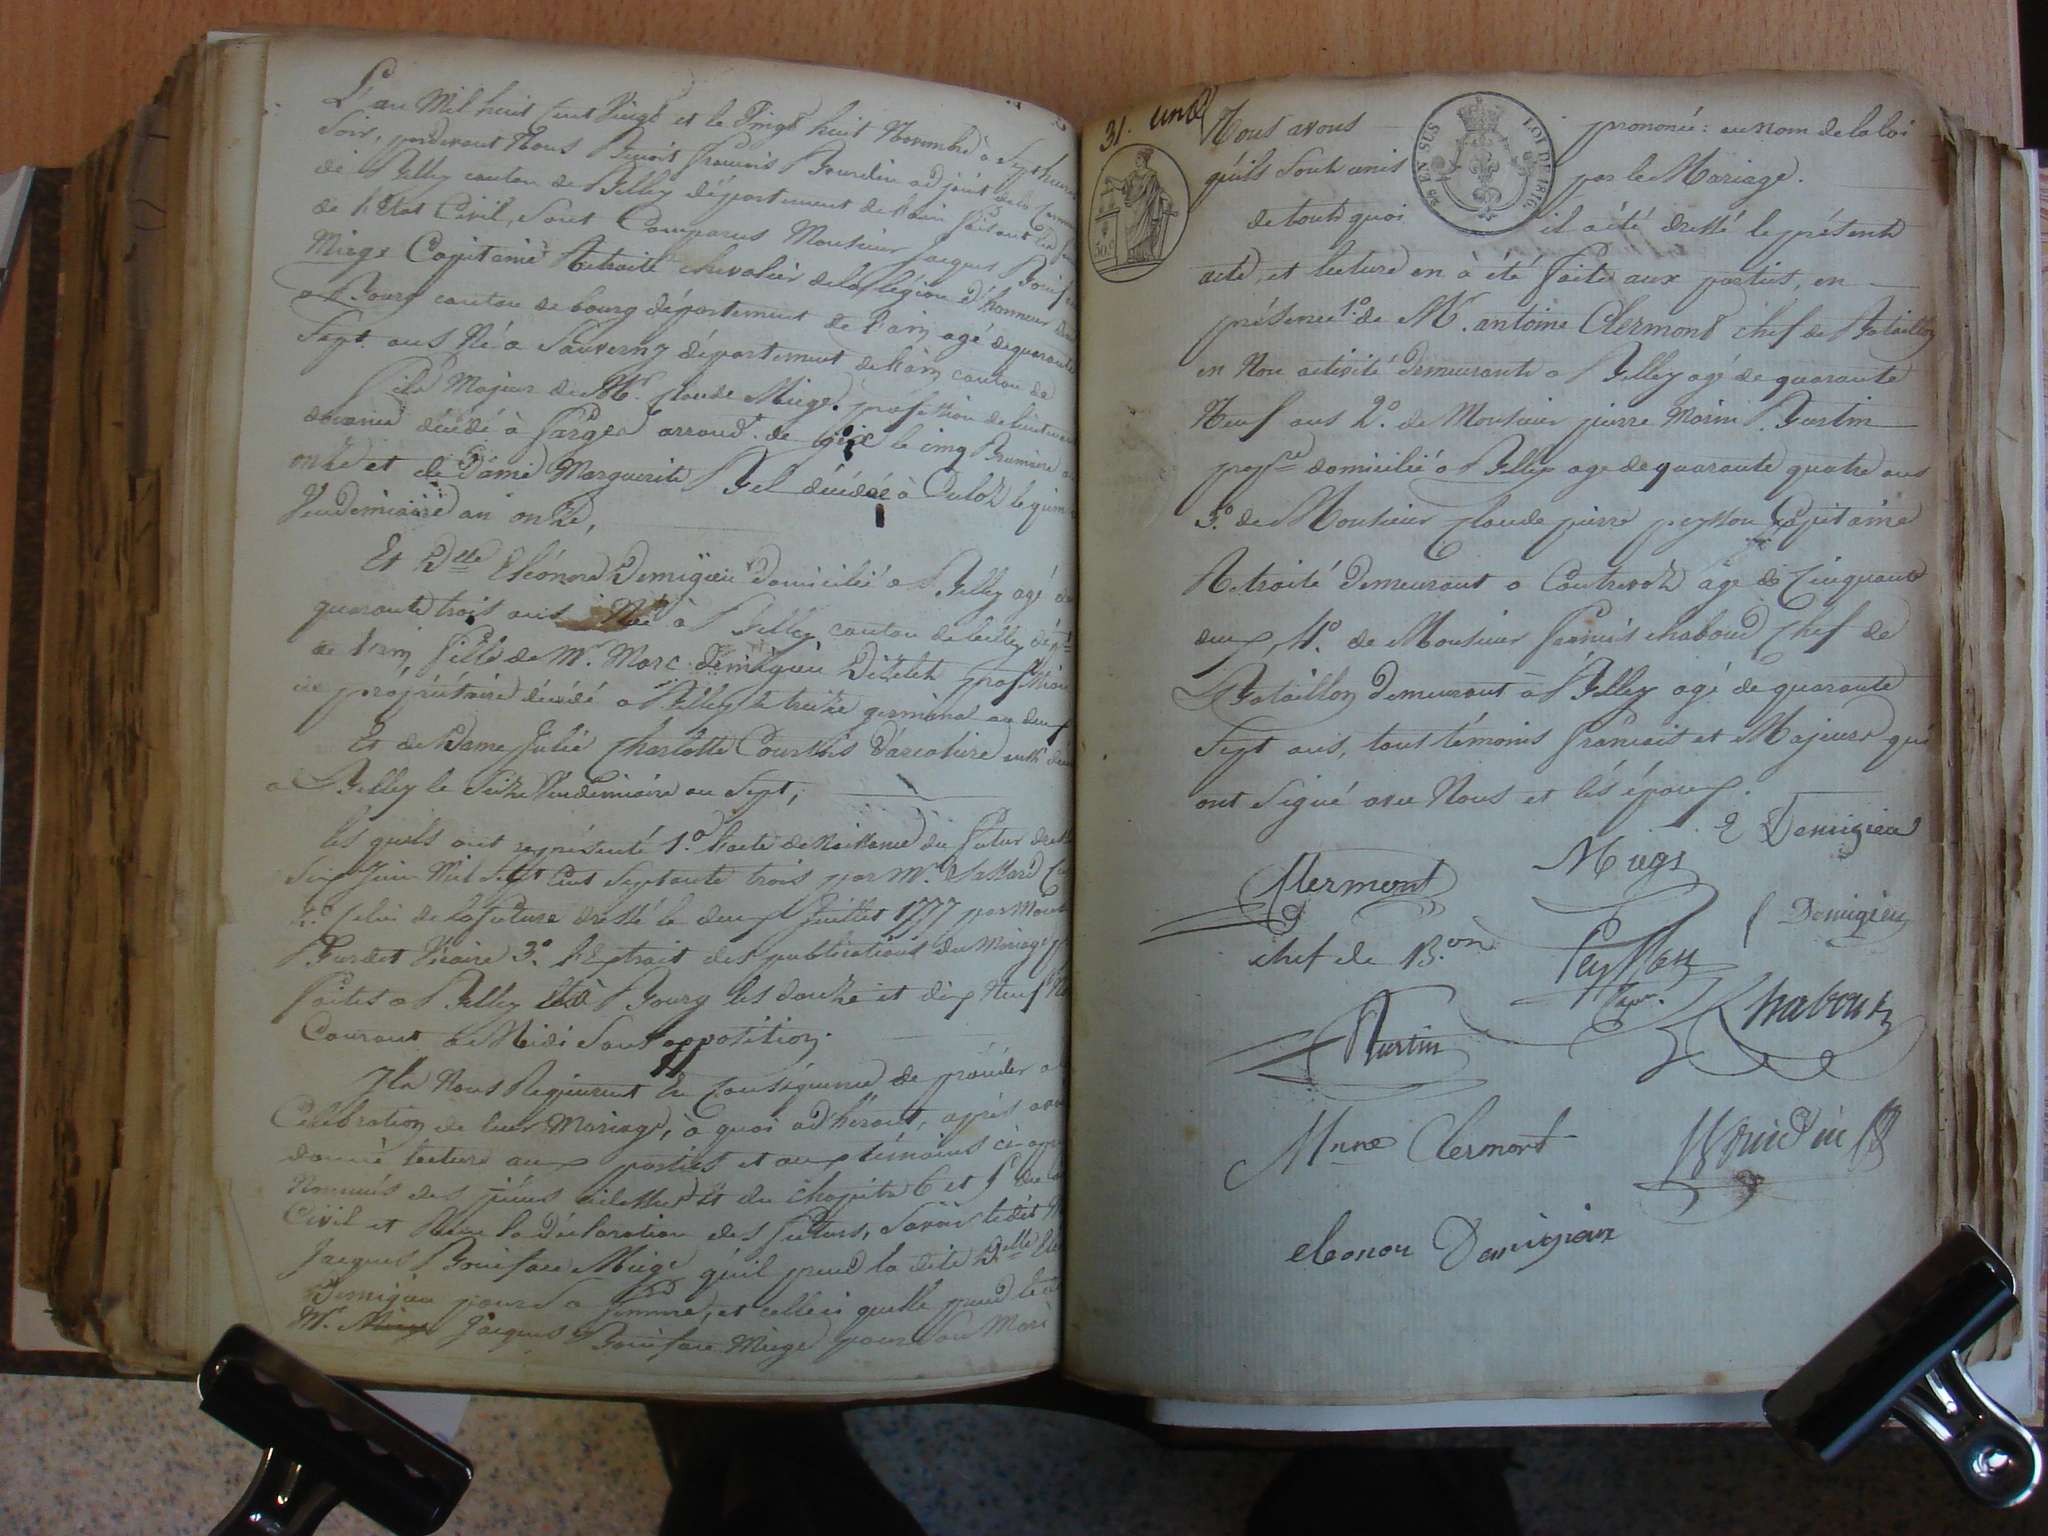 L'an Mil huit Cent Vingt et le Vingt huit Novembre à Sept heures
Soir, pardevant Nous Benoit François Bourdin adjoint de la
de Belley canton de Belley département de l'ain faisant les
de l'Etat Civil, sont Comparus Monsieur Jacques
Miege Capitaine Retraité chevalier de la légion d'honneur
a Bourg canton de bourg département de l'ain agé de quarante
Sept ans Né a Sauverny département de l'ain canton de
fils Majeur de Mr. Claude Miege, profession de lieutenant
décédé à farges arrondt. de Gex le cinq Brumaire
onze et de Dame Marguerite Bel décédée à Culoz le
Vendemiaire an onze,
Et Dlle Eléonore Demigieu domicilié a Belley agé de
quarante trois ans Née à Belley canton de belley
de l'ain, fille de Mr. Marc demigieu profession
de propriétaire décédé a Belley le treize germinal an deux
Et de Dame Julie Charlotte Courtois
a Belley le seize Vendemiaire an Sept,
les quels ont représenté 1.° l'acte de Naissance du futur
Six Juin Mil Sept Cent Septante trois par Mr.
2.° Celui de la future dressé le deux Juillet 1777 par
Burdet Vicaire 3.° l'Extrait des publications du Mariage
faites a Belley et à Bourg les douze et dix Neuf
Courant à Midi Sans opposition.
Ils Nous Requiérent En Conséquence de procéder a
Célébration de leur Mariage, à quoi adhérant, après avoir
donné lecture aux parties et aux témoins
Nommés des pièces cidessus Et du Chapitre 6 et
Civil et Reçu la Déclaration des futurs, Savoir ledit
Jacques Boniface Miege qu'il prend la dite Delle
Demigieu pour Sa femme, et celleci quelle prend
Mr. Miege Jacques Boniface Miege pour Son Mari
31. unze
30 c
25 EN SUS
LOI DE 1816.
Nous avons prononcé: au nom de la loi
qu'ils sont unis par le Mariage.
de tout quoi il a été dressé le présent
acte, et lecture en à été faite aux parties, en
présence 1.° de Mr. antoine Clermont chef de Bataillon
en Non activité Demeurant a Belley agé de quarante
Neuf ans 2.° de Monsieur pierre Marin Burtin
propre domicilié a Belley age de quarante quatre ans
3.° de Monsieur Claude pierre peysson Capitaine
Retraité Demeurant a Contrevoz agé de Cinquante
deux, 4.° de Monsieur francois chaboud Chef de
Bataillon Demeurant à Belley agé de quarante
Sept ans, tous témoins francais et Majeurs qui
ont signé avec Nous et les époux.
E Demigieu
Clermont
Miege
Demigieu
chef de B.on
Peysson
Chaboud
Burtin
Clermont
Bourdin
eleonor Demigieu